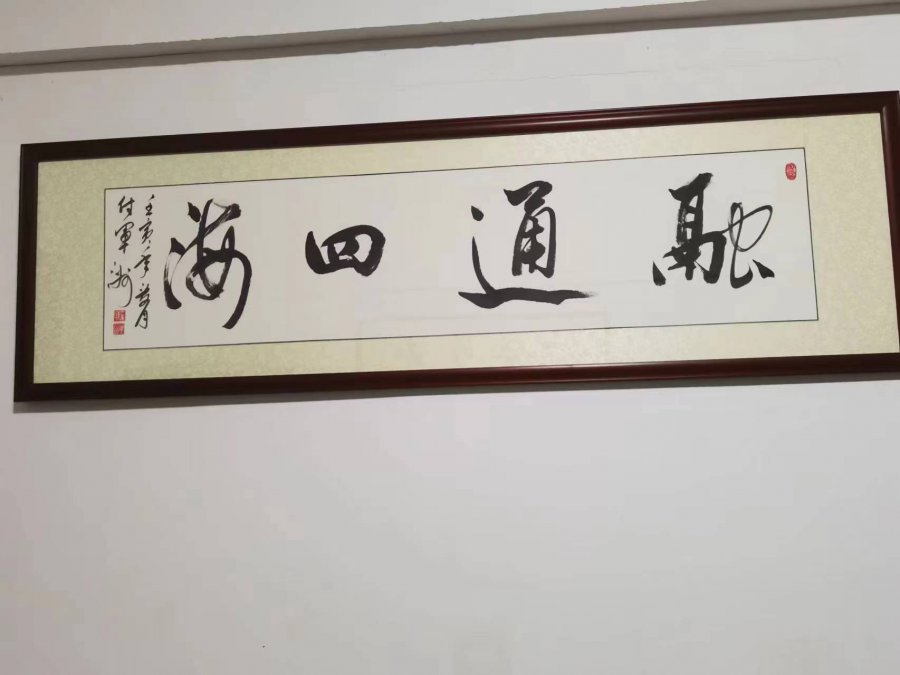 融通四海
壬寅年 月
付軍